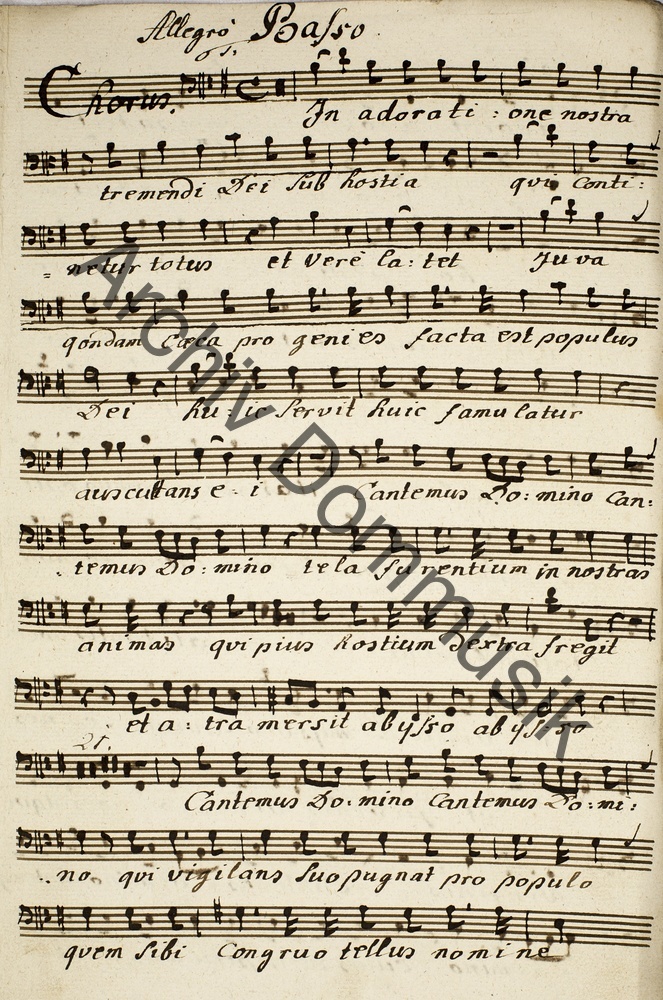 Allegrò Basso
Chorus.
In adorati : one nostra
tremendi Dei sub hostia qui conti :
= netur totus et verè la : tet Juva
qondam cœca pro genies facta est populus
Dei hu : ic servit huic famulatur
auscultans e : i Cantemus Do : mino Can :
. temus Do : mino tela furentium in nostras
animas qui pius hostium dextra fregit
et a : tra mersit abysso abys : so
21.
Cantemus Do : mino Cantemus Do : mi :
. no qui vigilans suo pugnat pro populo
quem sibi Congruo tellus nomine
Archiv Dommusik